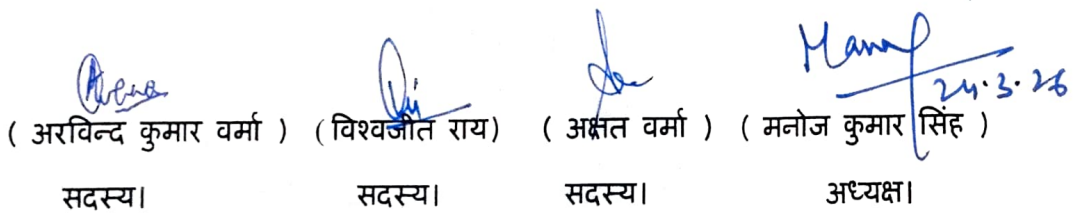 24.3.26
( अरविन्द कुमार वर्मा ) (विश्वजीत राय) ( अक्षत वर्मा ) ( मनोज कुमार सिंह )
सदस्य। सदस्य। सदस्य। अध्यक्ष।